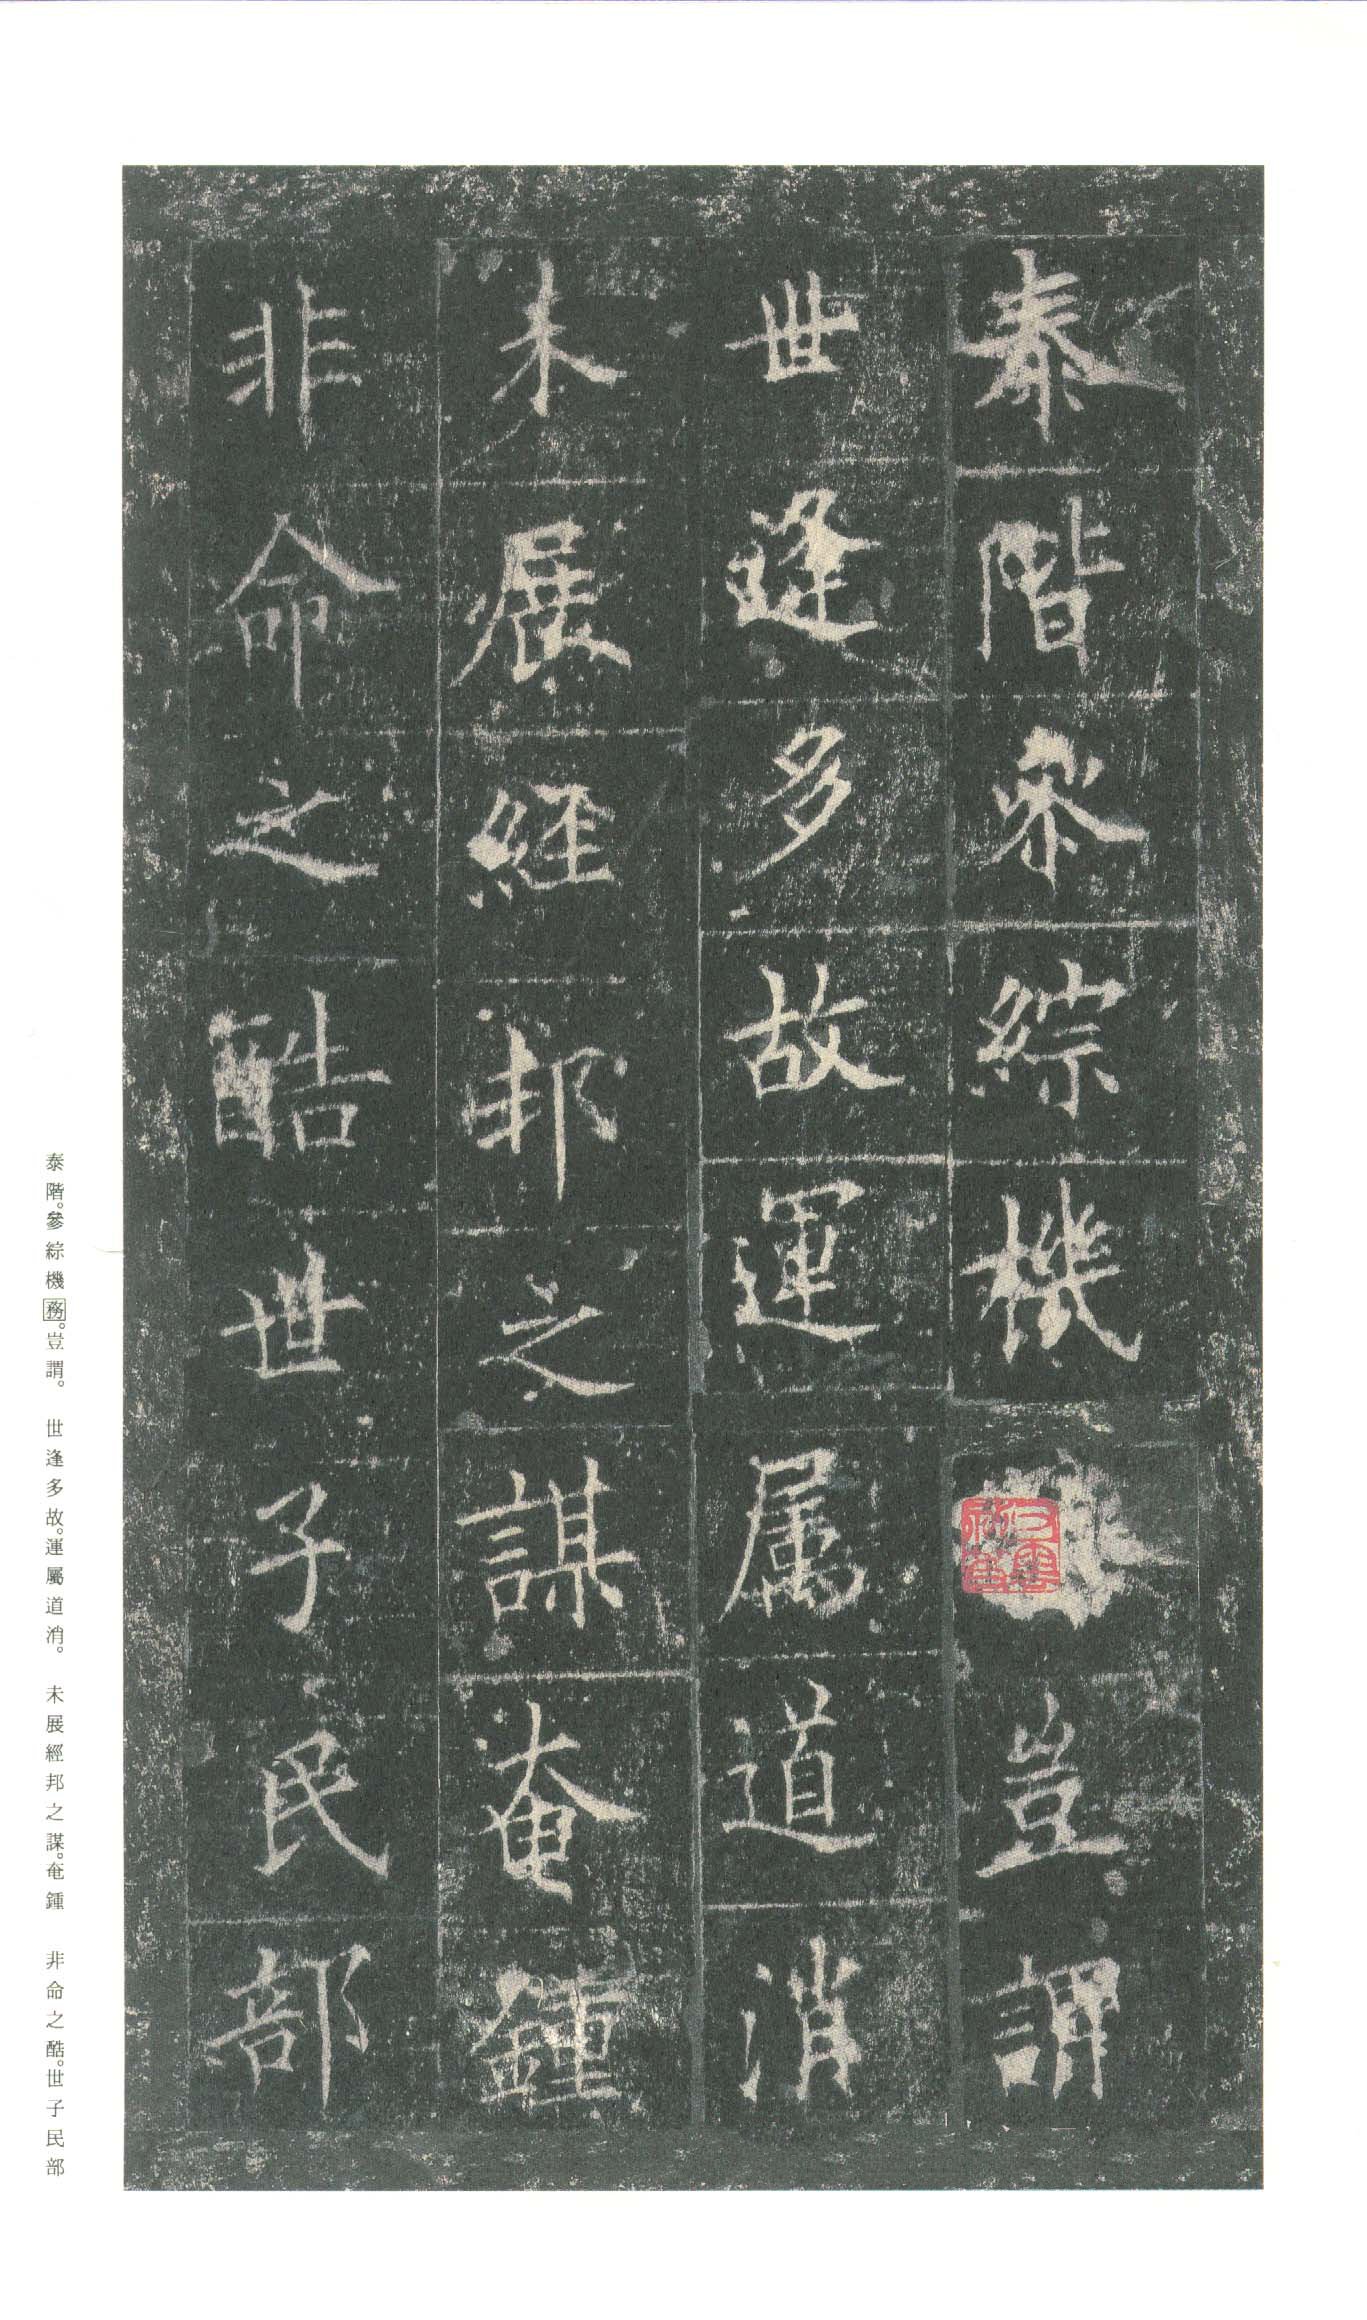 泰階叅綜機豈謂
世逢多故運属道消
未展經邦之謀奄鍾
非命之酷世子民部
泰階。參綜機務。豈謂。　世逢多故。運屬道消。　未展經邦之謀。奄鍾　非命之酷。世子民部